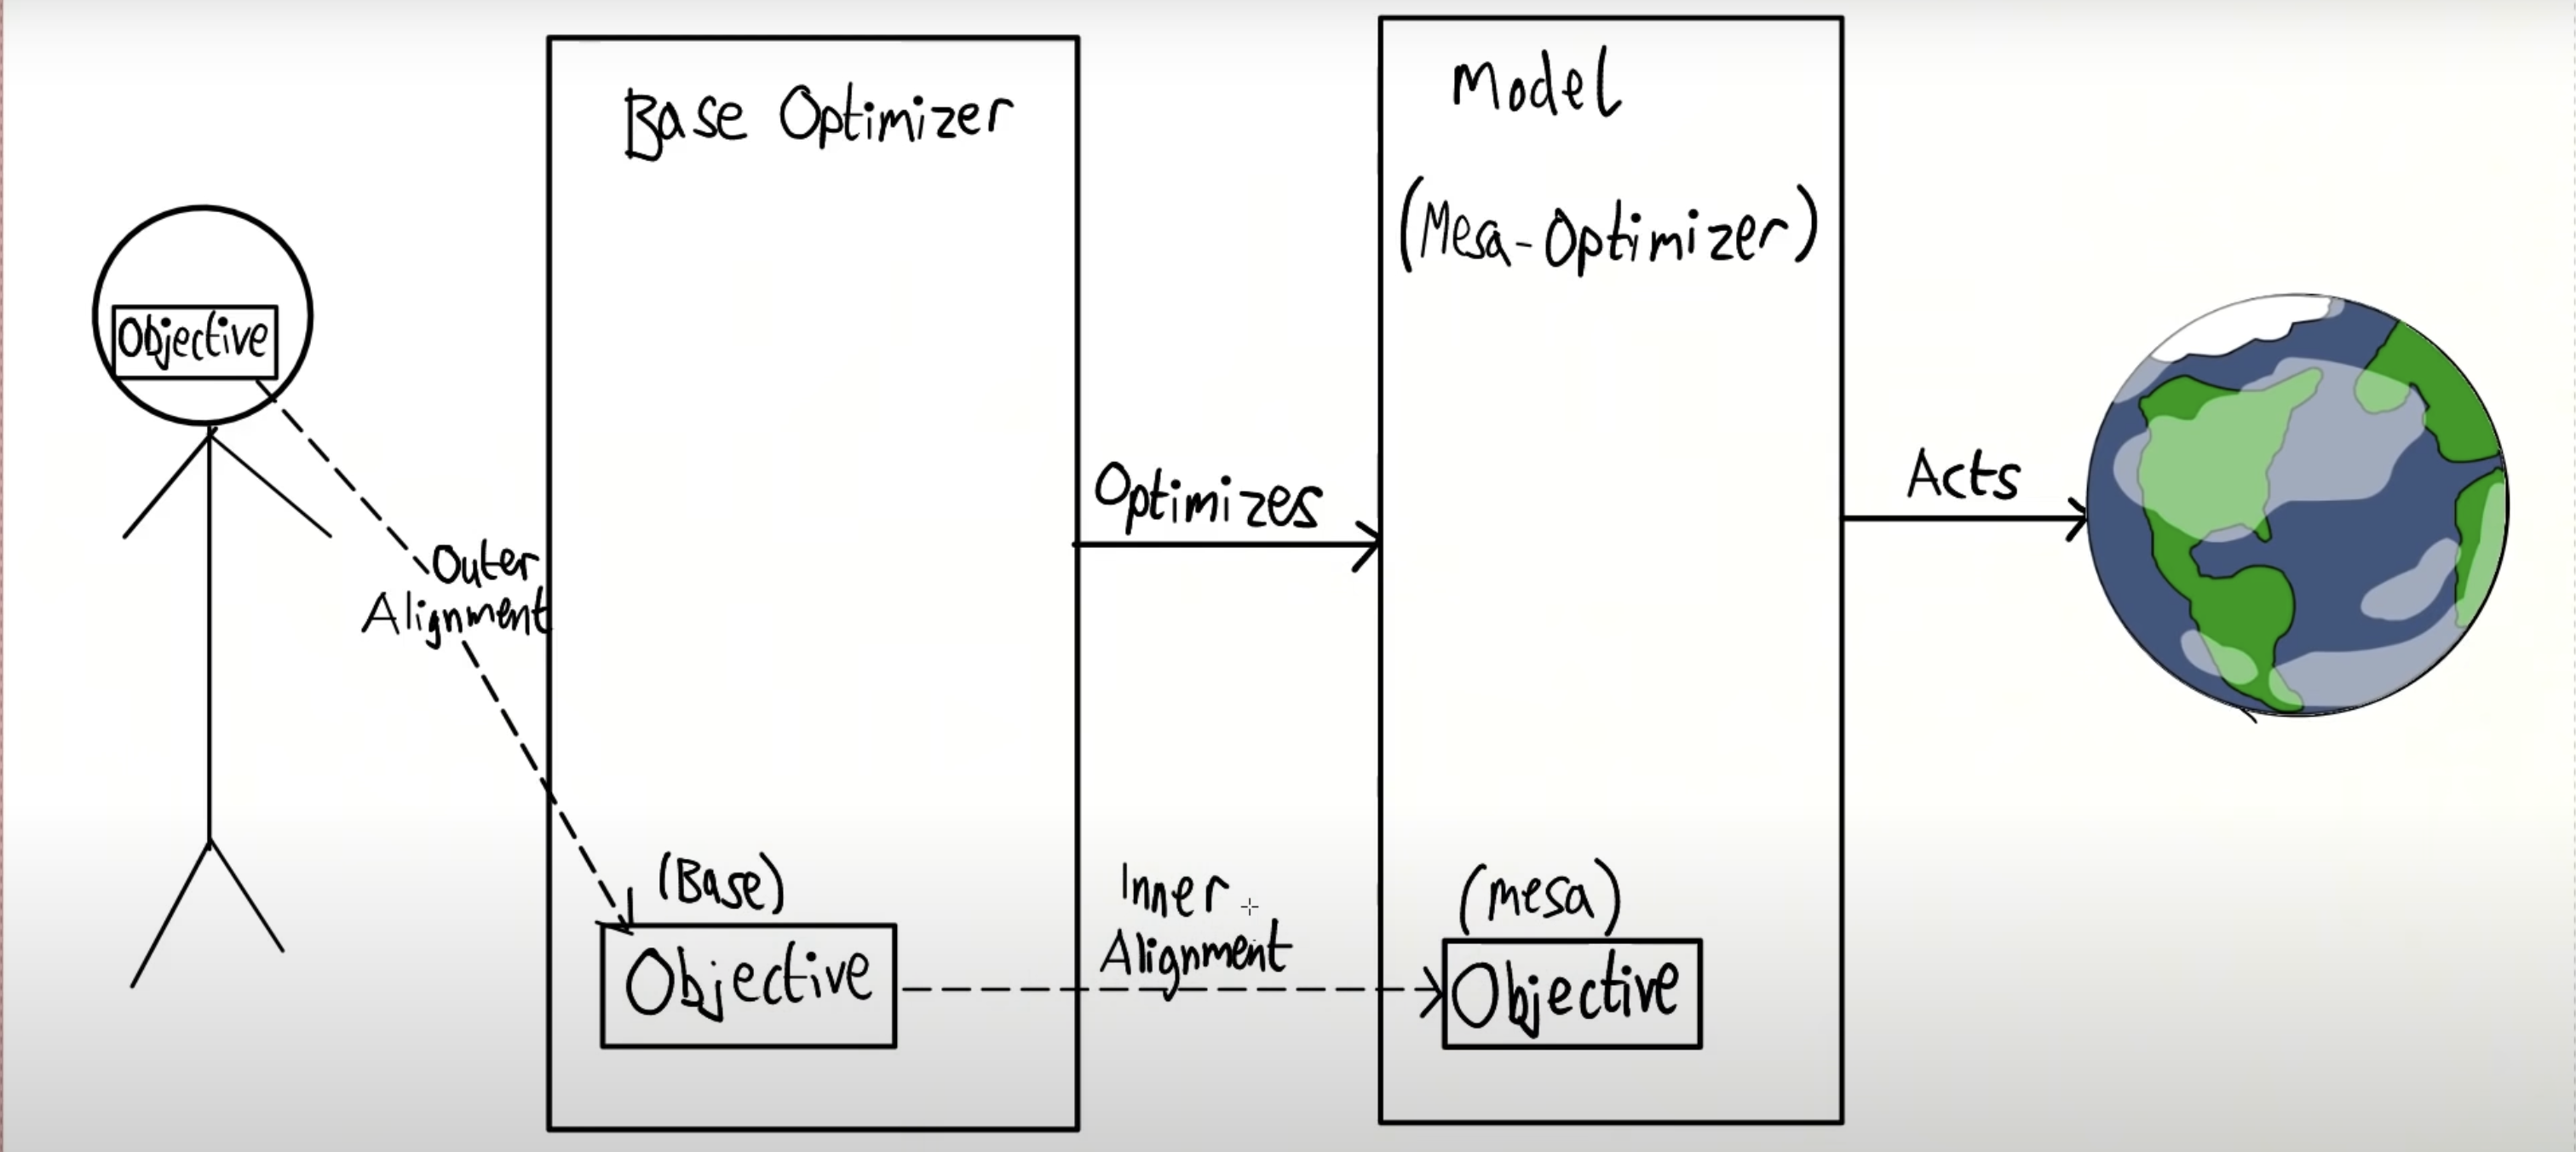 Objective
Outer
Alignment
Base Optimizer
(Base)
Objective
Optimizes
Inner
Alignment
Model
(Mesa-Optimizer)
(mesa)
Objective
Acts